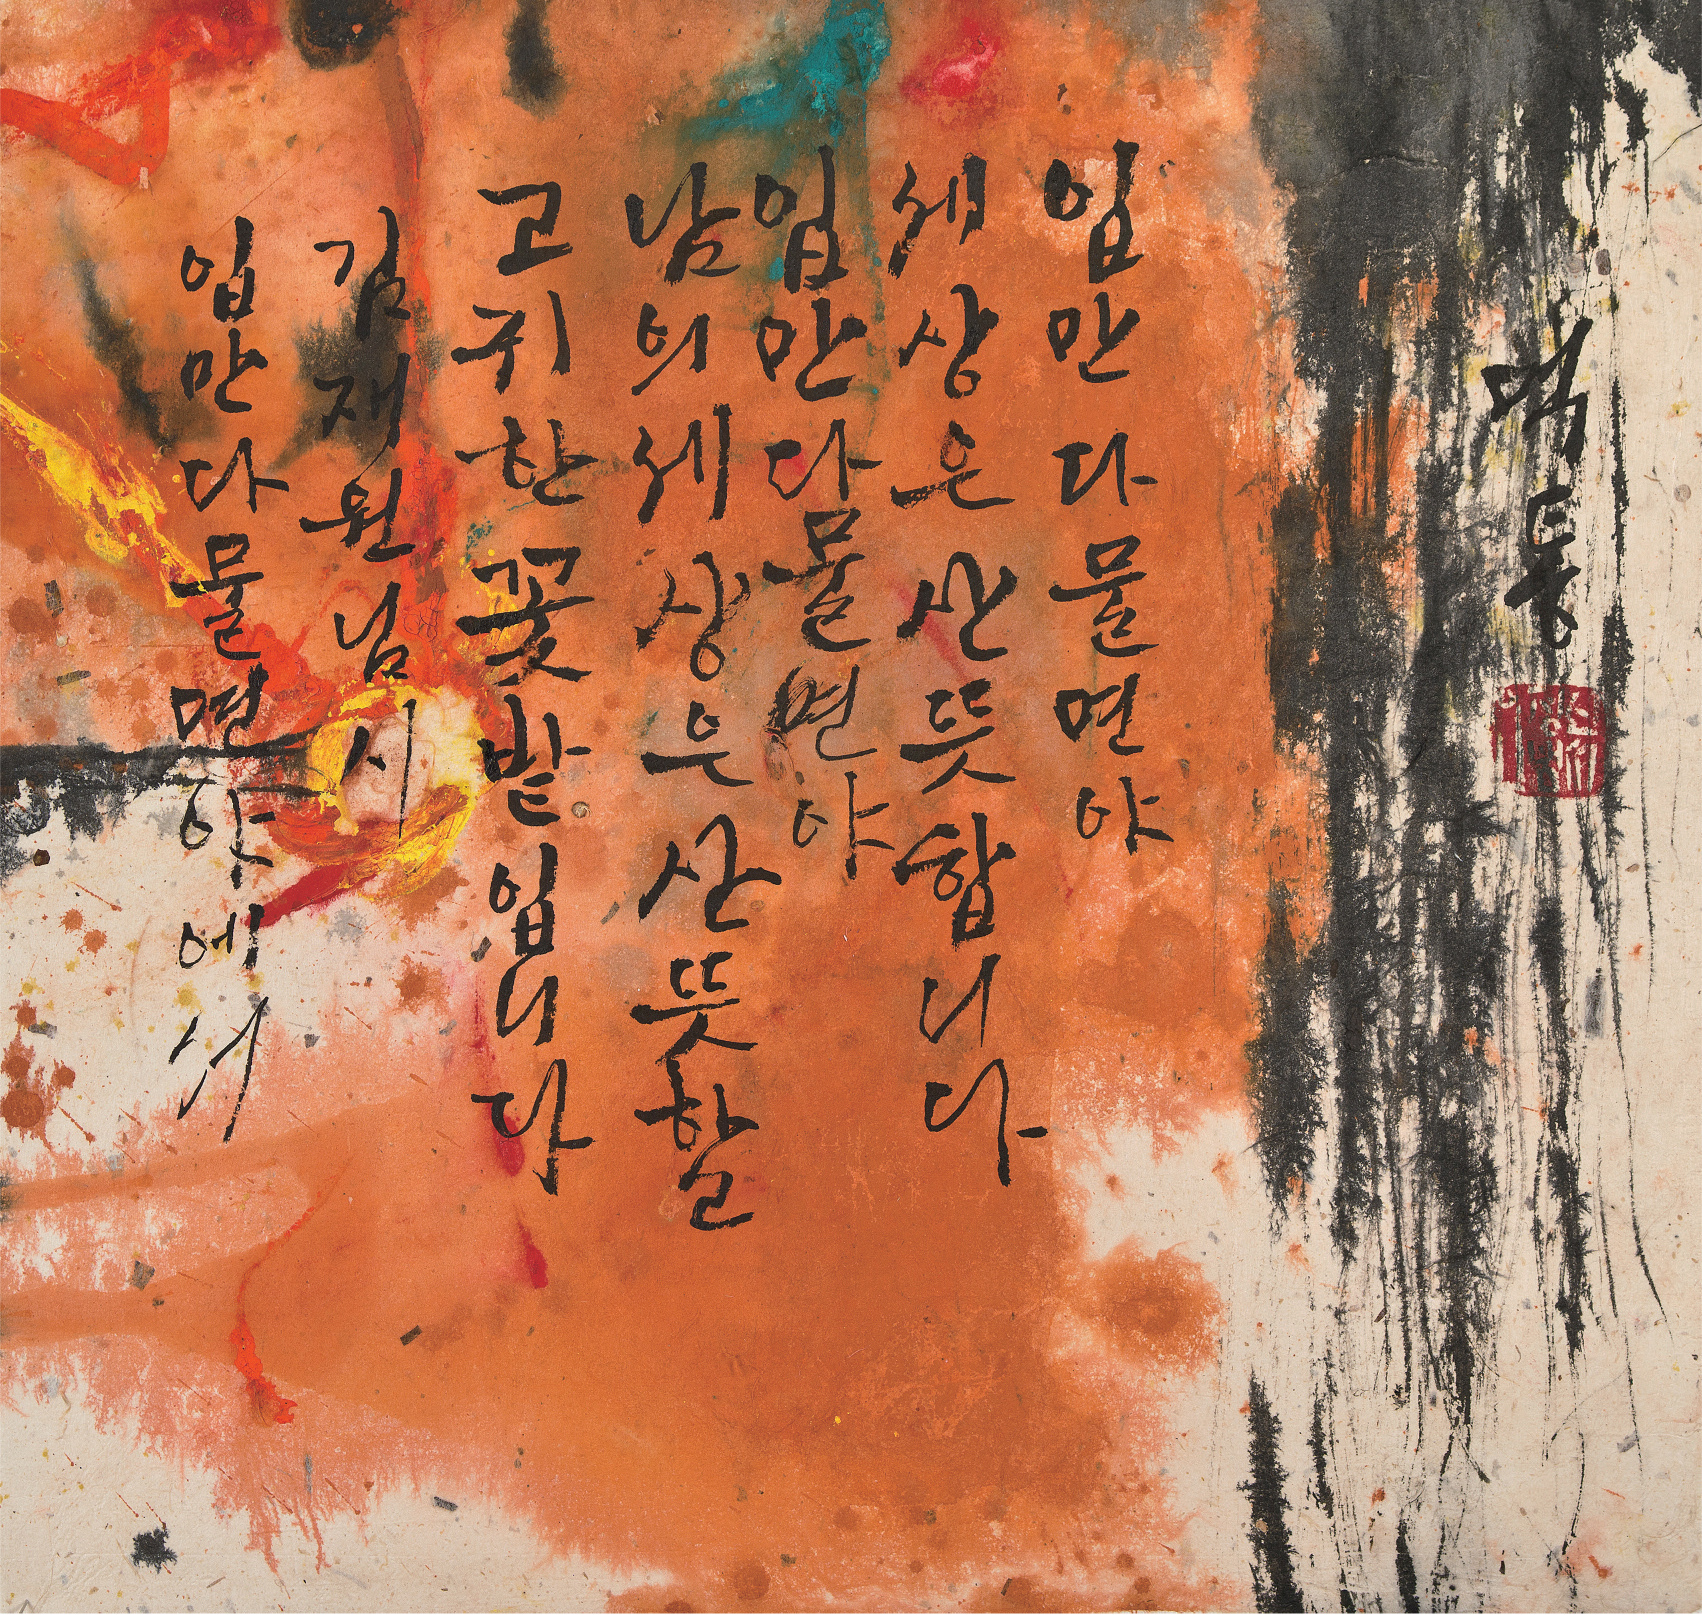 먹통
입만 다물면야
세상은 산뜻합니다
입만 다물면야
남의 세상은 산뜻할
고귀한 꽃밭입니다
김재원님 시
입만 다물면하에서